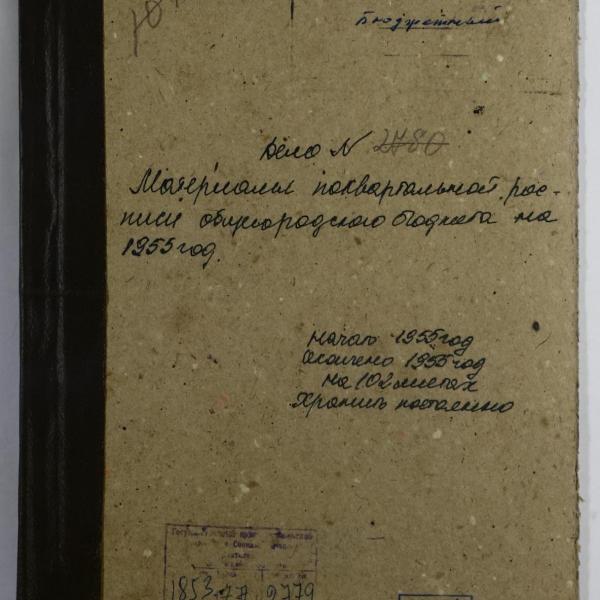 Бюджетный
Дело N 2780
Материалы поквартальной рос-
писи общегородского бюджета на
1955 год.
Начато 1955 год
Окончено 1955 год
на 102 листах
Хранить постоянно
1853 9779